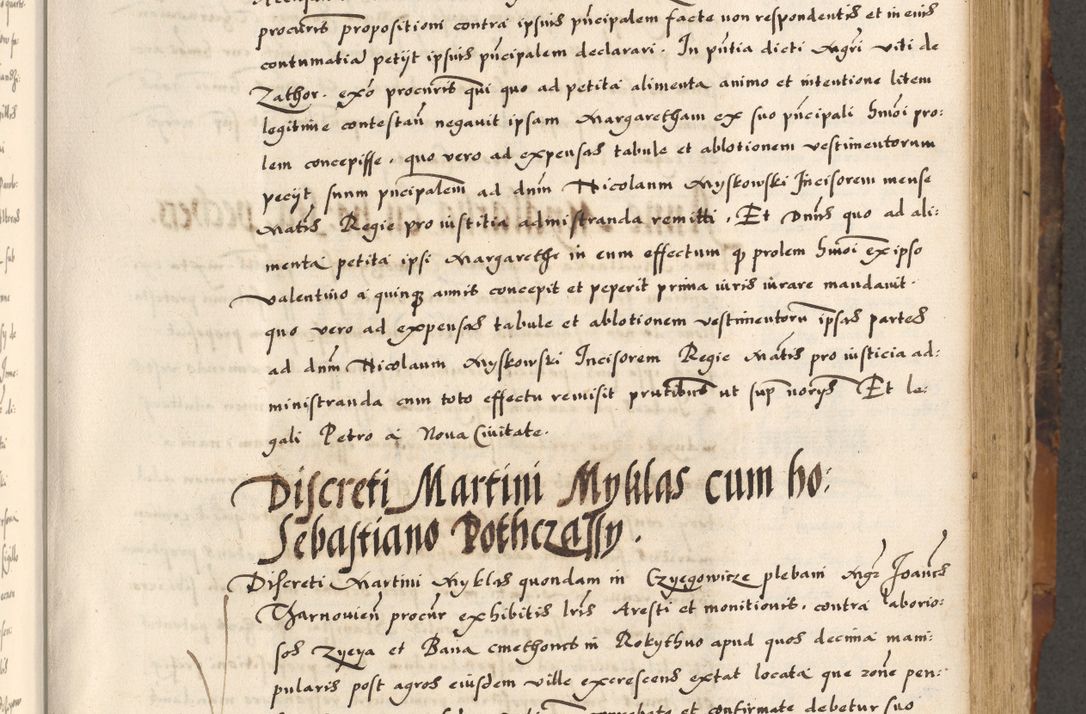 procuris propositioni contra ipsius pncipalem facte non respondentis et in eius
contumatia petijt ipsius pncipalem declarari. In pntia dicti Mgri Viti de
Zathor. exo procuris qui quo ad petita alimenta animo et intentione litem
legitime contestan negavit ipsam Margaretham ex suo pncipali hmoi pro:
lem concepisse. quo vero ad expensas tabule et ablotionem vestimentorum
pecijt suum pncipalem ad dnm Nicolaum Myskowski Incisorem mense
Matis Regie pro iustitia administranda remitti. Et Dnus quo ad ali:
menta petita ipsi Margarethe in eum effectum q prolem hmoi ex ipso
Valentino a quinq annis concepit et peperit prima iuris iurare mandavit.
quo vero ad expensas tabule et ablotionem vestimentoru ipsas partes
ad dnm Nicolaum Myskowski Incisorem Regie Matis pro iusticia ad:
ministranda cum toto effectu remisit pntibus ut sup noris Et le:
gali Petro a Nova Civitate.
Discreti Martini Myklas cum ho:
Sebastiano Pothczassy.
Discreti Martini Myklas quondam in Czyegowicze plebani Mgr Joanes
Tharnovien procur exhibitis lris Aresti et monitionis. contra laborio:
sos Zyeya et Bana cmethones in Rokythno apud quos decima mani:
pularis post agros eiusdem ville excrescens extat locata que zone pen:
probato et confirmate debetur suo